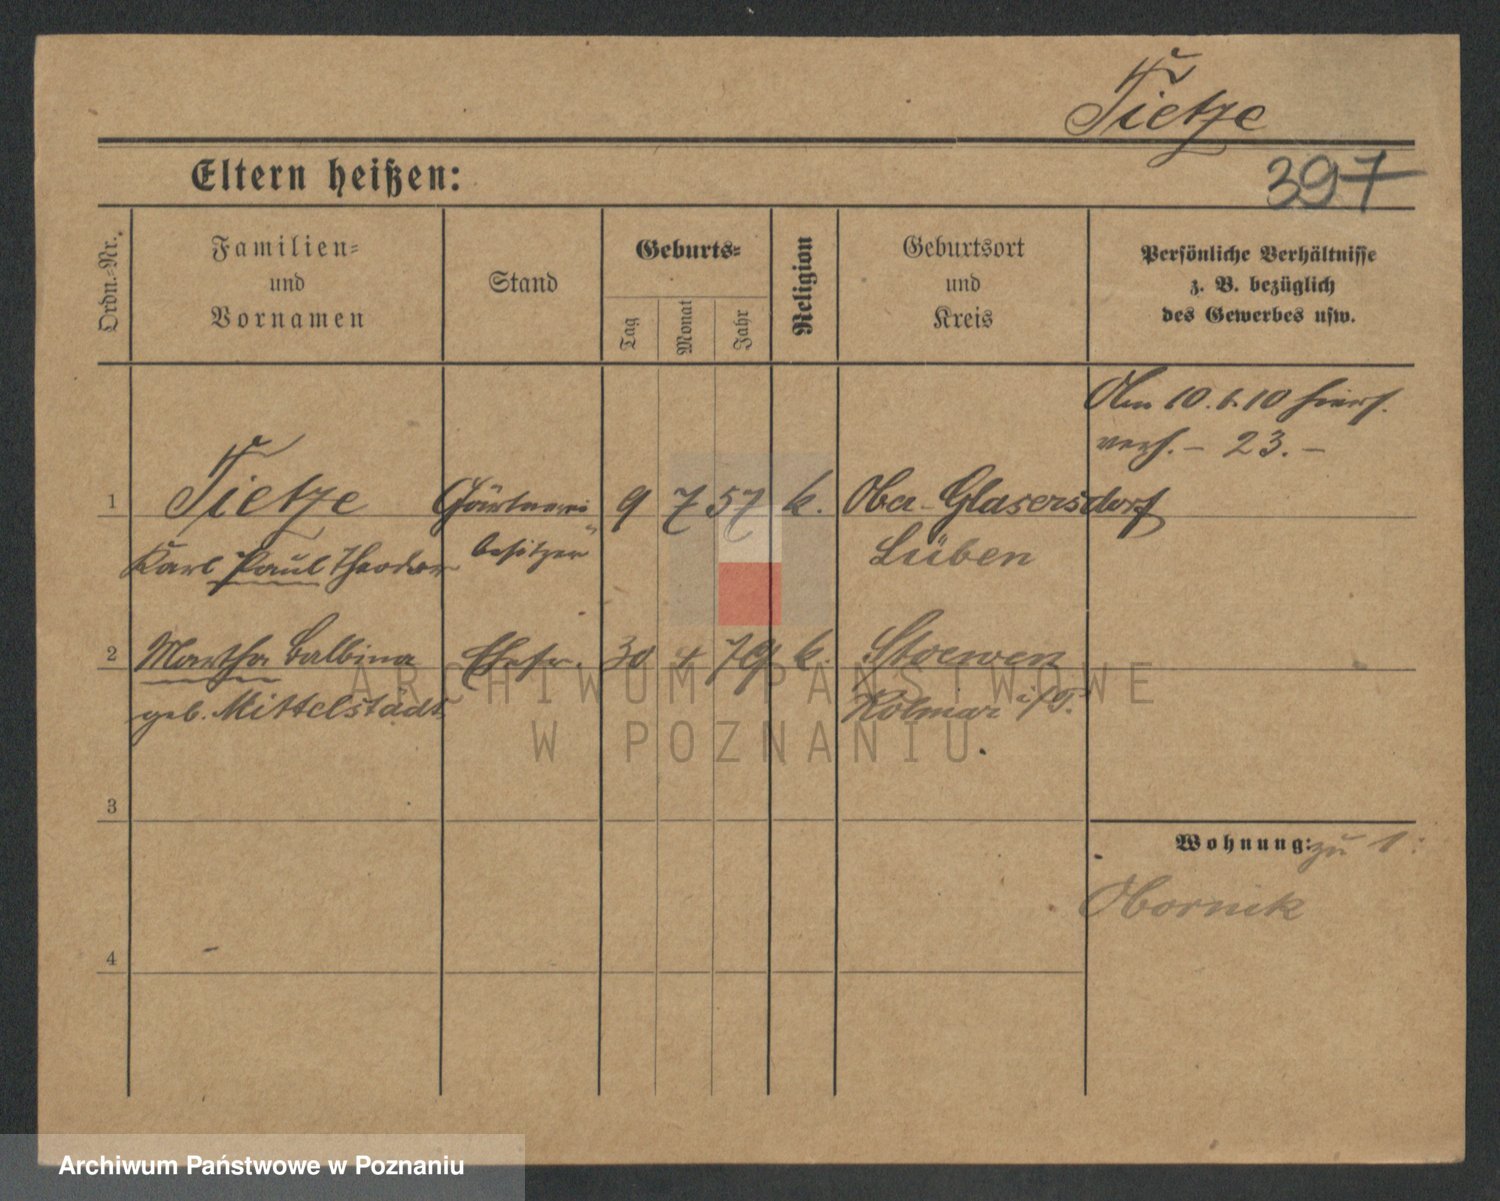 Tietze
397
Eltern heißen:
Ordn.-Nr.
Familien-
und
Vornamen
Stand
Geburts-
Tag
Monat
Jahr
Religion
Geburtsort
und
Kreis
Persönliche Verhältnisse
z. B. bezüglich
des Gewerbes usw.
Am 10.6.10 hiers.
verh. – 23. –
1 Tietze Gärtnerei 9 7 57 k. Ober-Glasersdorf
Karl Paul Theodor besitzer Lüben
2 Martha Balbina Ehefr. 30 4 79 k. Stoewen
geb. Mittelstädt Kolmar i/P.
3
Wohnung: zu 1:
Obornik
4
ARCHIWUM PAŃSTWOWE
W POZNANIU
Archiwum Państwowe w Poznaniu